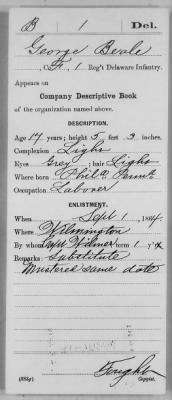 B 1 Del.
George Beale
F, 1 Reg't Delaware Infantry.
Appears on
Company Descriptive Book
of the organization named above.
DESCRIPTION.
Age 17 years; height 5 feet 3 inches.
Complexion Light
Eyes Grey; hair Light
Where born Phila Penna
Occupation Laborer
ENLISTMENT.
When Sept 1, 1864.
Where Wilmington
By whom Capt Wilmer term 1 y'rs
Remarks: Substitute
Mustered same date
(383g) Copyist.